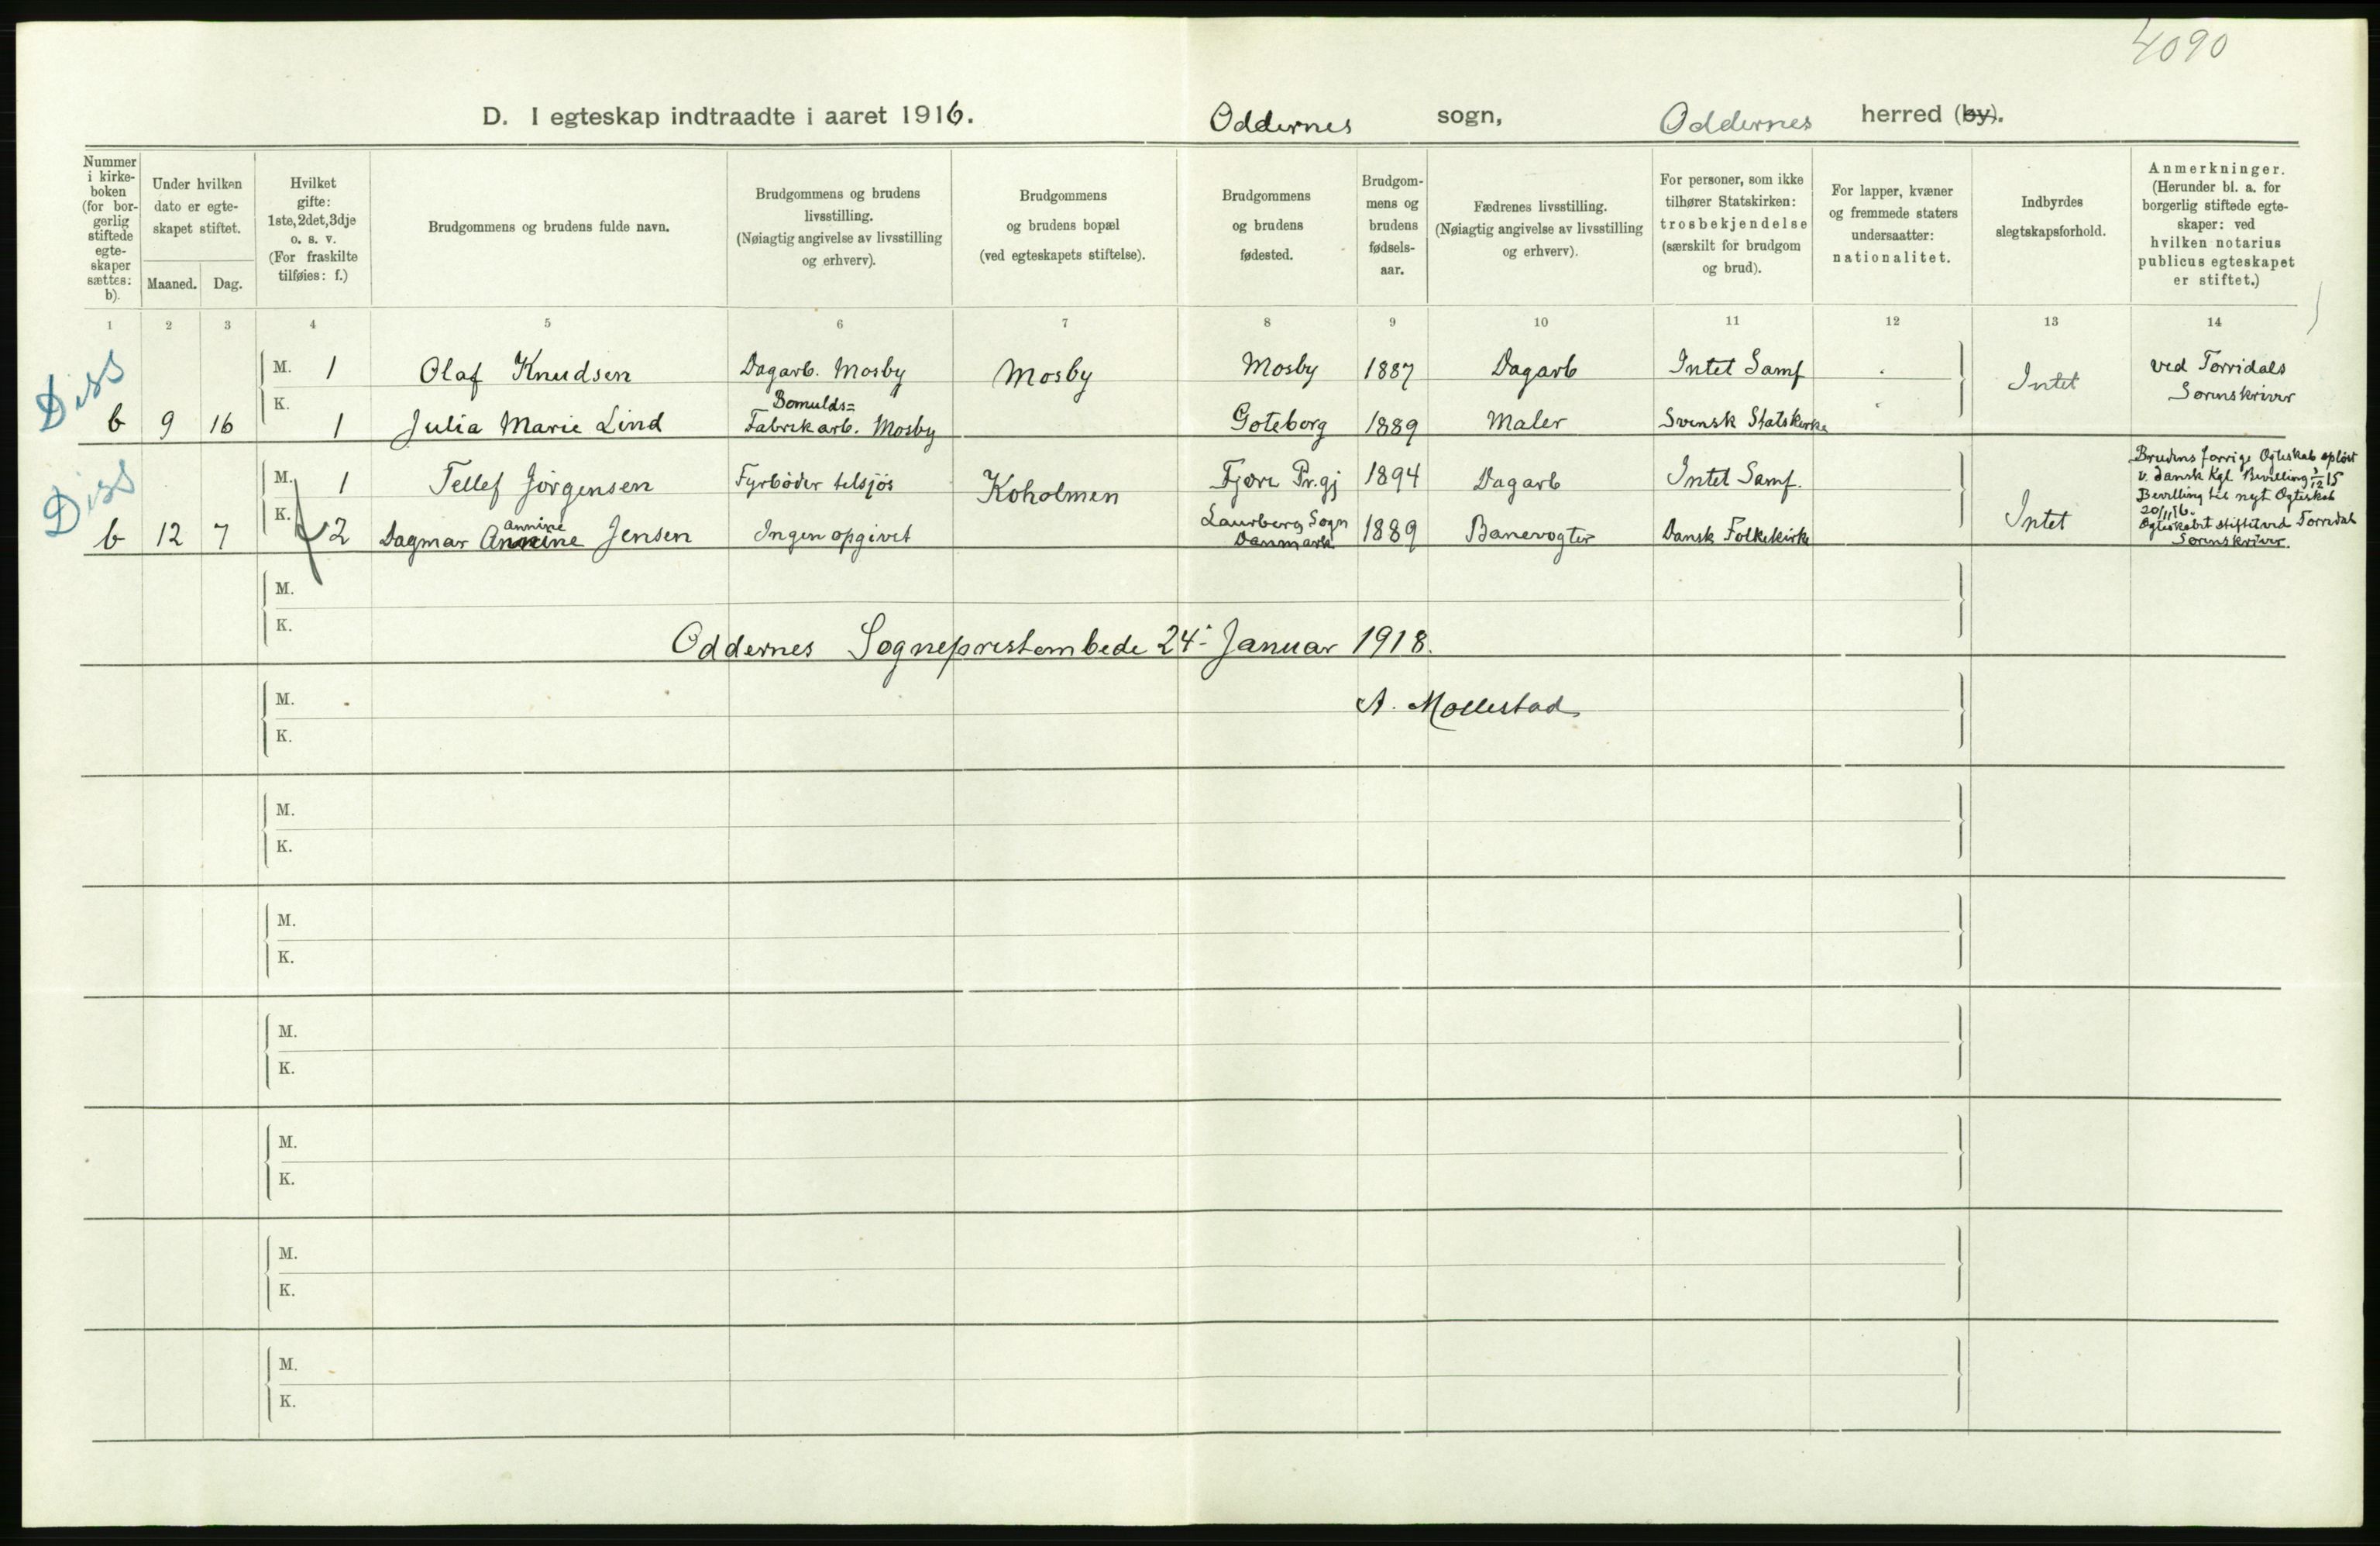 4090
D. I egteskap indtraadte i aaret 1916. Oddernes sogn, Oddernes herred (by).
Nummer i kirkeboken (for borgerlig stiftede egteskaper sættes: b).
Under hvilken dato er egteskapet stiftet.
Maaned. Dag.
Hvilket gifte: 1ste, 2det, 3dje o. s. v. (For fraskilte tilføies: f.)
Brudgommens og brudens fulde navn.
Brudgommens og brudens livsstilling. (Nøiagtig angivelse av livsstilling og erhverv).
Brudgommens og brudens bopæl (ved egteskapets stiftelse).
Brudgommens og brudens fødested.
Brudgommens og brudens fødselsaar.
Fædrenes livsstilling. (Nøiagtig angivelse av livsstilling og erhverv).
For personer, som ikke tilhører Statskirken: trosbekjendelse (særskilt for brudgom og brud).
For lapper, kvæner og fremmede staters undersaatter: nationalitet.
Indbyrdes slegtskapsforhold.
Anmerkninger. (Herunder bl. a. for borgerlig stiftede egteskaper: ved hvilken notarius publicus egteskapet er stiftet.)
1 2 3 4 5 6 7 8 9 10 11 12 13 14
Diss
M. 1 Olaf Knudsen Dagarb. Mosby Mosby Mosby 1887 Dagarb Intet Samf Intet ved Torridals Sorenskriver
b 9 16 K. 1 Julia Marie Lind Bomulds= Fabrikarb. Mosby Goteborg 1889 Maler Svensk Statskirke
Diss
M. 1 Tellef Jörgensen Fyrböder tilsjös Koholmen Fjære Pr.gj 1894 Dagarb Intet Samf. Intet
b 12 7 K. 2 Dagmar Annine Annine Jensen Ingen opgivet Laurberg Sogn Danmark 1889 Banevogter Dansk Folkekirke
Brudens forrige Ogteskab oplöst
v. dansk Kgl Bevilling 1/12 15
Bevilling til nyt Ogteskab
20/11 16.
Ogteskabet stiftet ved Torridal
Sorenskriver.
M.
K.
Oddernes Sogneprestembede 24. Januar 1918.
M.
A. Mollestad
K.
M.
K.
M.
K.
M.
K.
M.
K.
M.
K.
M.
K.